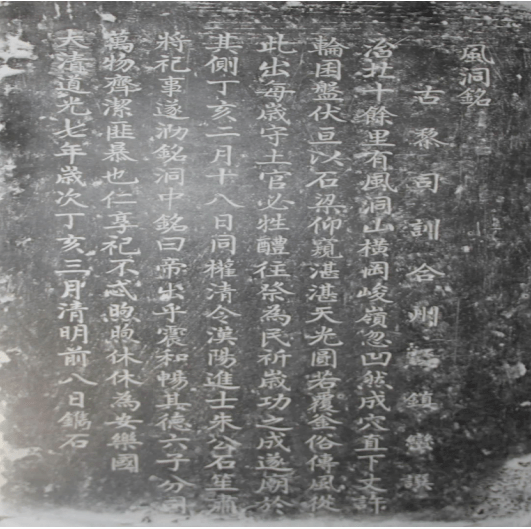 風洞銘
古黎司訓合 江鎮巒譔
治北十餘里有風洞山橫岡峻嶺忽凹然成穴直下丈許
輪囷盤伏亘以石梁仰窺湛湛天光圓若覆釜俗傳風從
此出每歲守土官必牲醴往祭為民祈歲功之成遂廟於
其側丁亥二月十八日同權清令漢陽進士朱公石笙肅
將祀事遂泐銘洞中銘曰帝出乎震和暢其德六子分司
萬物齊潔匪暴也仁享祀不忒煦煦休休為安樂國
大清道光七年歲次丁亥三月清明前八日鐫石